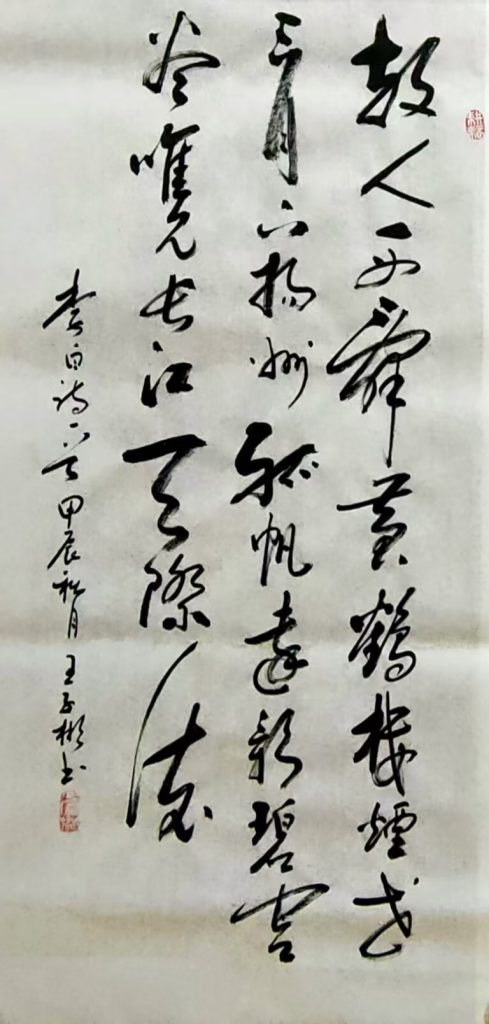 故人西辭黄鶴樓煙花
三月下揚州孤帆遠影碧空
盡唯見長江天際流
李白詩一首甲辰秋月王子彬書